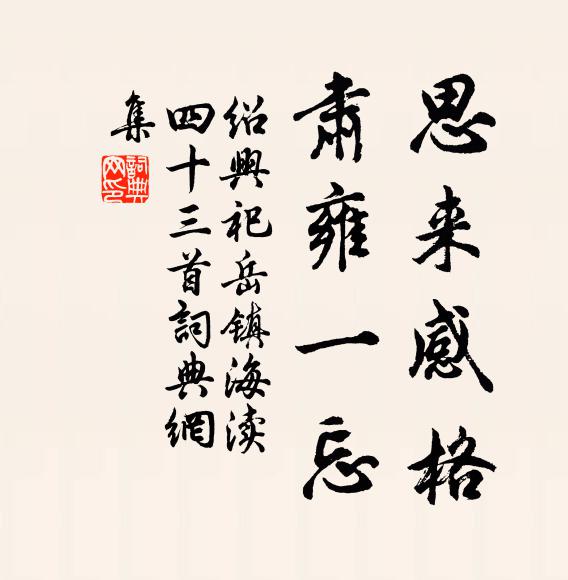 思来感格
肃雍一忘
绍興祀岳镇海渎
四十三首詞典網
集
詞典
网印